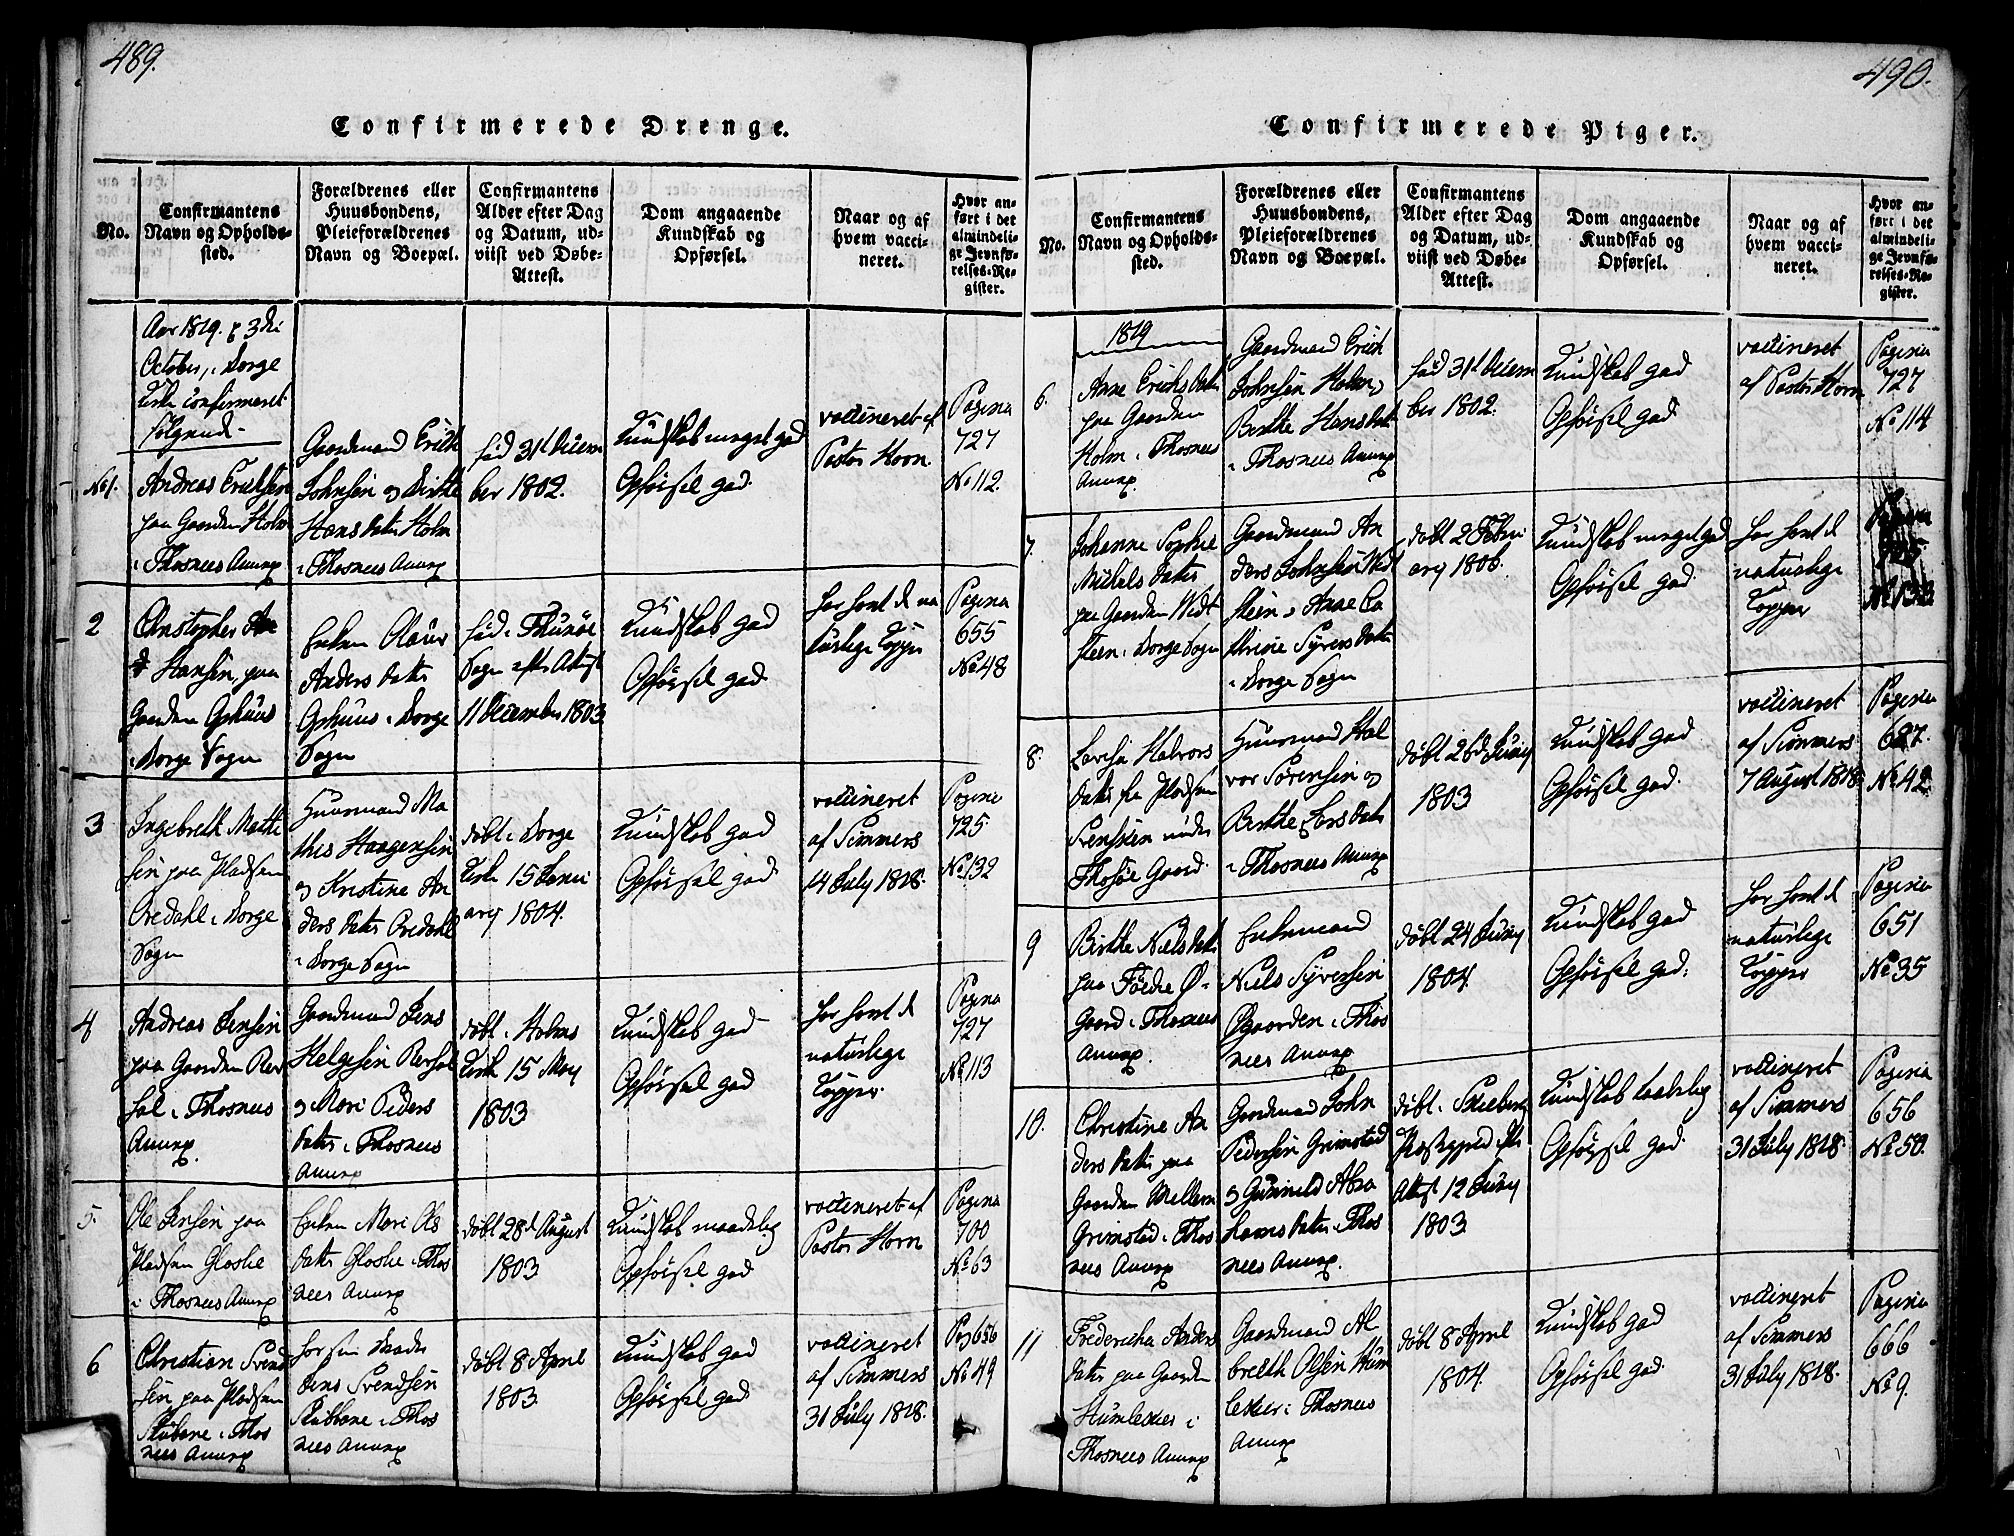 489.
Confirmerede Drenge.
No.
Confirmantens
Navn og Opholds-
sted.
Forældrenes eller
Huusbondens,
Pleieforældrenes
Navn og Boepæl.
Confirmantens
Alder efter Dag
og Datum, ud-
viist ved Døbe-
Attest.
Dom angaaende
Kundskab og
Opførsel.
Naar og af
hvem vacci-
neret.
Hvor an-
ført i det
almindeli-
ge Jevnfø-
relses-Re-
gister.
Aar 1819. 3die
October, i Borge
Kirke confirmeret
følgende
No 1.
Andreas Erichsen
paa Gaarden Holm
i Thosnees Annex
Gaardmand Erich
Johnsen og Birthe
Hans Datter Holm
i Thosnees Annex
fød 31t Decem
ber 1802.
Kundskab meget god
Opførsel god.
vaccineret af
Pastor Horn.
Pagina
727
No 112.
2
Christopher
Hansen, paa
Gaarden Ophuus
i Borge Sogn
Enken
Anders Datter
Ophuus i Borge
Sogn
fød i Thunøe
Sogn efter Attest
11 December 1803
Kundskab god
Opførsel god
har havt de na
turlige Kopper
Pagina
655
No 48
3
Ingebreth Mathi
sen paa Pladsen
Oredahl i Borge
Sogn
Huusmand Ma
this Haagensen
og Kristine An
ders Datter Oredahl
i Borge Sogn
døbt i Borge
Kirke 15 Janu
ary 1804.
Kundskab god
Opførsel god
vaccineret
af Simmers
14 July 1818.
Pagina
725
No 132
4
Andreas Jensen
paa Gaarden Rør
sol i Thosnees
Annex.
Gaardmand Jens
Helgesen Rørsol
og Mari Peders
Datter i Thosnees
Annex
døbt i Holms
Kirke 15 May
1803
Kundskab god
Opførsel god
har havt de
naturlige
Kopper
Pagina
727
No 113
5.
Ole Jensen paa
Pladsen Gloshe
i Thosnees Annex
Enken Mari Ols
Datter Gloshe i Thos
nees Annex
døbt 28d August
1803
Kundskab maadelig
Opførsel god
vaccineret af
Pastor Horn
Pagina
700
No 63
6
Christian Svend
sen paa Pladsen
Stubbene i Thos
nees Annex
for sin Moder
Jens Svendsen
Stubbene i Thos
nees Annex
døbt 8 April
1803.
Kundskab god
Opførsel god
vaccineret
af Simmers
31 July 1818.
Pag 656
No 49
490.
Confirmerede Piger.
No.
Confirmantens
Navn og Opholds-
sted.
Forældrenes eller
Huusbondens,
Pleieforældrenes
Navn og Boepæl.
Confirmantens
Alder efter Dag
og Datum, ud-
viist ved Døbe-
Attest.
Dom angaaende
Kundskab og
Opførsel.
Naar og af
hvem vacci-
neret.
Hvor an-
ført i det
almindeli-
ge Jevnfø-
relses-Re-
gister.
1819
6.
Anne Erichs Datter
paa Gaarden
Holm i Thosnees
Annex.
Gaardmand Erich
Johnsen Holm og
Birthe Hans Datter
i Thosnees Annex
fød 31t Decem
ber 1802.
Kundskab god
Opførsel god
vaccineret
af Pastor Horn
Pagina
727
No 114
7.
Johanne Sophie
Michels Datter
paa Gaarden Vidt
steen i Borge Sogn
Gaardmand An
ders Johnsen Vidt
steen og Anne Ca
thrine Syvers Datter
i Borge Sogn
døbt 2 Febru
ary
Kundskab meget god
Opførsel god.
har havt de
naturlige
Kopper
Pagina
725
No 133
8.
Lovisa Halvors
Datter fra Pladsen
Svenskeen under
Thosøe Gaard.
Huusmand Hal
vor Sørensen og
Birthe Lars Datter
i Thosnees Annex
døbt 26d Juny
1803
Kundskab god
Opførsel god.
vaccineret
af Simmers
7 August 1818.
Pagina
627.
No 42.
9
Birthe Niels Datter
paa Føedre Ø-
Gaard i Thosnees
Annex.
Enkemand
Niels Syversen
Øgaarden i Thos
nees Annex
døbt 24 Juny
1804.
Kundskab god
Opførsel god.
har havt de
naturlige
Kopper
Pagina
651
No 35
10.
Christine An
ders Datter paa
Gaarden Mellem
Grimstad i Thos
nees Annex
Gaardmand John
Pedersen Grimstad
og Gunnild Abra
hams Datter i Thos
nees Annex.
døbt i Skieberg
Attest 12 Juny
1803
Kundskab taalelig
Opførsel god.
vaccineret
af Simmers
31 July 1818.
Pagina
656
No 50.
11
Fredericha Anders
Datter paa Gaarden
Humlekiær i
Thosnees Annex
Gaardmand Al
breth Olsen Hum
lekiær i Thosnees
Annex
døbt 8 April
1804.
Kundskab god
Opførsel god.
vaccineret
af Simmers
31 July 1818.
Pagina
666
No 9.